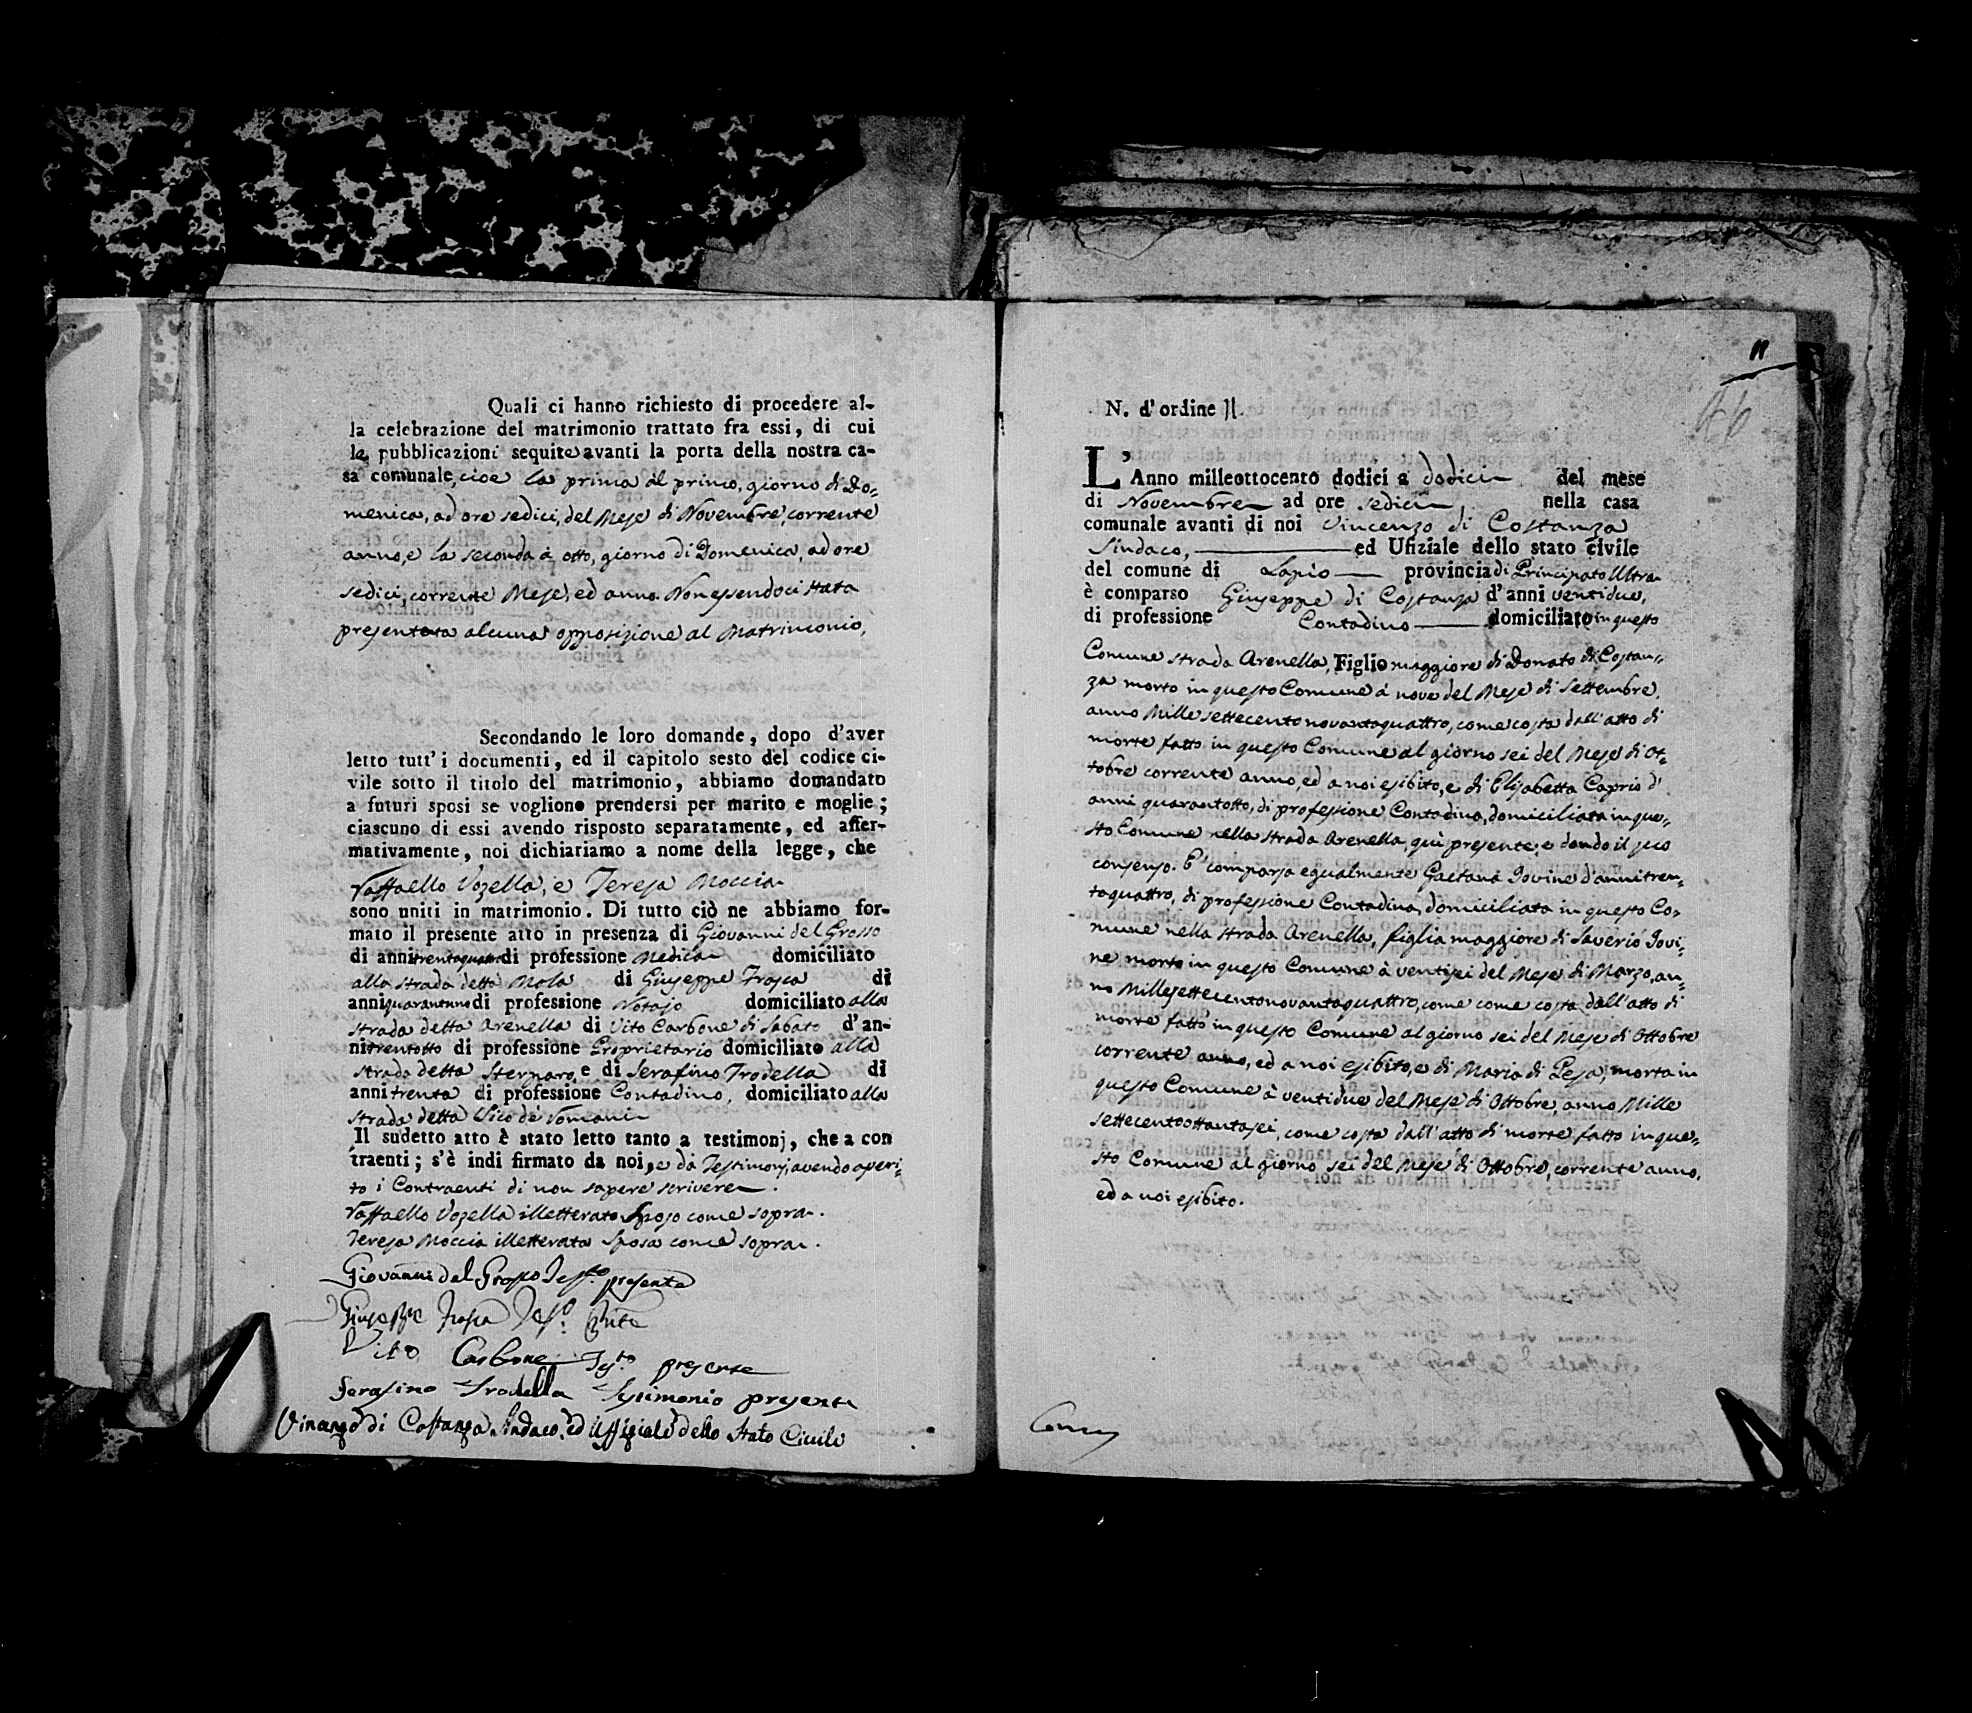 Quali ci hanno richiesto di procedere al-
la celebrazione del matrimonio trattato fra essi, di cui
le pubblicazioni sequite avanti la porta della nostra ca-
sa comunale, cioe la prima al primo, giorno di Do-
menica, ad ore sedici, del Mese di Novembre, corrente
anno, e la seconda à otto, giorno di Domenica, ad ore
sedici, corrente Mese, ed anno. Non essendoci stata
presentata alcuna opposizione al Matrimonio,
Secondando le loro domande, dopo d'aver
letto tutt' i documenti, ed il capitolo sesto del codice ci-
vile sotto il titolo del matrimonio, abbiamo domandato
a futuri sposi se vogliono prendersi per marito e moglie;
ciascuno di essi avendo risposto separatamente, ed affer-
mativamente, noi dichiariamo a nome della legge, che
Raffaello Vozella, e Teresa Moccia
sono uniti in matrimonio. Di tutto ciò ne abbiamo for-
mato il presente atto in presenza di Giovanni del Grosso
di anni trentaquattro di professione Medico domiciliato
alla strada detta Mola di Giuseppe Trosca di
anni quarantuno di professione Notajo domiciliato alla
strada detta Arenella di Vito Carbone di Sabato d'an-
ni trentotto di professione Proprietario domiciliato alla
strada detta Sternaro, e di Serafino Trodella di
anni trenta di professione Contadino, domiciliato alla
strada detta Vico de
Il sudetto atto è stato letto tanto a testimonj, che a con
traenti; s'è indi firmato da noi, e da Testimonj, avendo asseri-
to i Contraenti di non sapere scrivere.
Raffaello Vozella illetterato Sposo come sopra.
Teresa Moccia illetterata Sposa come sopra.
Giovanni del Grosso Testo. presente
Giuseppe Trosca Testo. pnte
Vito Carbone Testo. presente
Serafino Trodella Testimonio presente
Vincenzo di Costanza Sindaco, ed Uffiziale dello Stato Civile
11
N. d' ordine 11.
L'Anno milleottocento dodici a dodici del mese
di Novembre ad ore sedici nella casa
comunale avanti di noi Vincenzo di Costanza
Sindaco, ed Ufiziale dello stato civile
del comune di Lapio provincia di Principato Ultra
è comparso Giuseppe di Costanza d'anni ventidue,
di professione Contadino domiciliato in questo
Comune strada Arenella, Figlio maggiore di Donato di Costan-
za morto in questo Comune à nove del Mese di Settembre,
anno Mille settecento novantaquattro, come costa dall'atto di
morte fatto in questo Comune al giorno sei del Mese di Ot-
tobre corrente anno, ed a noi esibito, e di Elisabetta Caprio d'
anni quarantotto, di professione Contadina, domiciliata in que-
sto Comune nella strada Arenella, quì presente, e dando il suo
consenso. E' comparsa egualmente Gaetana Iovine d'anni tren-
taquattro, di professione Contadina, domiciliata in questo Co-
mune nella strada Arenella, figlia maggiore di Saverio Iovi-
ne morto in questo Comune à ventisei del Mese di Marzo, an-
no Millesettecentonovantaquattro, come come costa dall'atto di
morte fatto in questo Comune al giorno sei del Mese di Ottobre
corrente anno, ed a noi esibito, e di Maria di Pesa, morta in
questo Comune à ventidue del Mese di Ottobre, anno Mille
settecentottantasei, come costa dall'atto di morte fatto in que-
sto Comune al giorno sei del Mese di Ottobre, corrente anno,
ed a noi esibito.